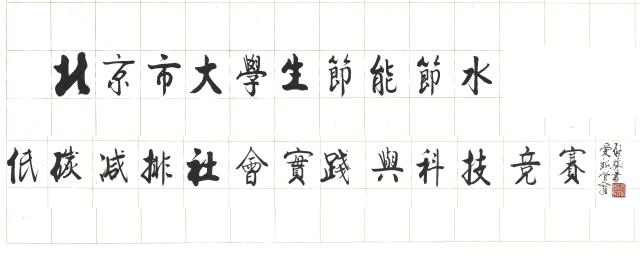 北京市大學生節能節水
低碳减排社會實踐與科技竞賽